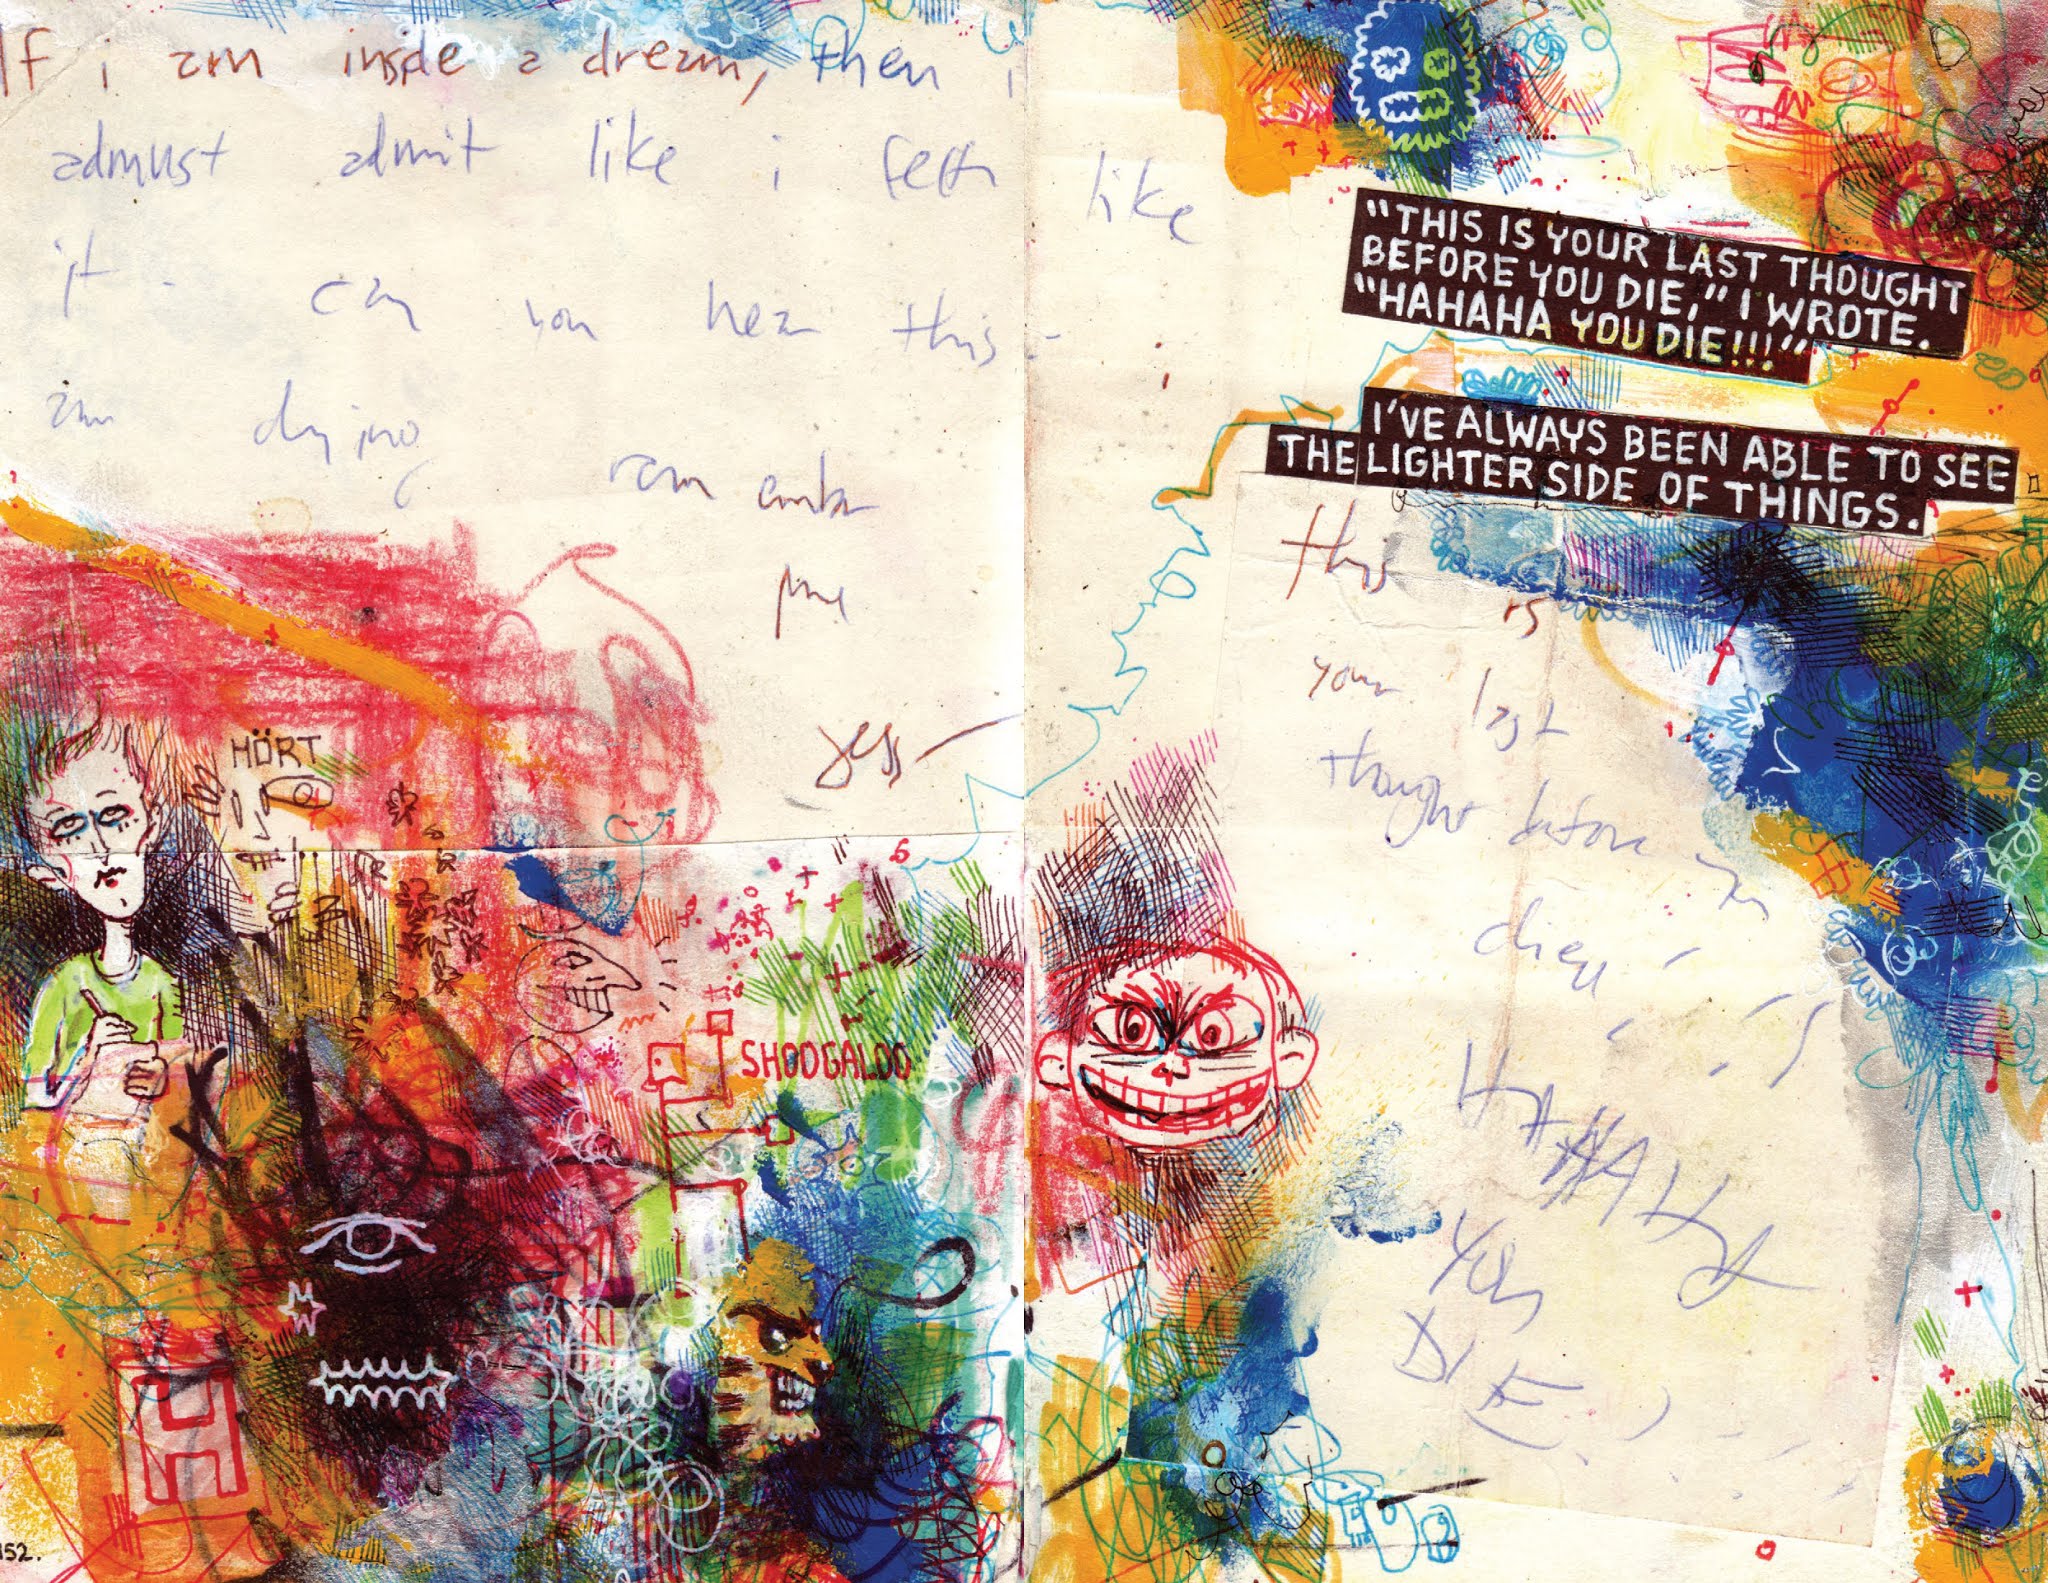 If i am inside a dream, then i
admust admit like i feel like
it - can you hear this -
am dying
rem ember
me
Jess
HÖRT
SHOOGALOO
H
152.
"THIS IS YOUR LAST THOUGHT
BEFORE YOU DIE," I WROTE.
"HAHAHA YOU DIE!!!"
I'VE ALWAYS BEEN ABLE TO SEE
THE LIGHTER SIDE OF THINGS.
this is
your last
thought before you
die
HAHAHAHA
You
DIE